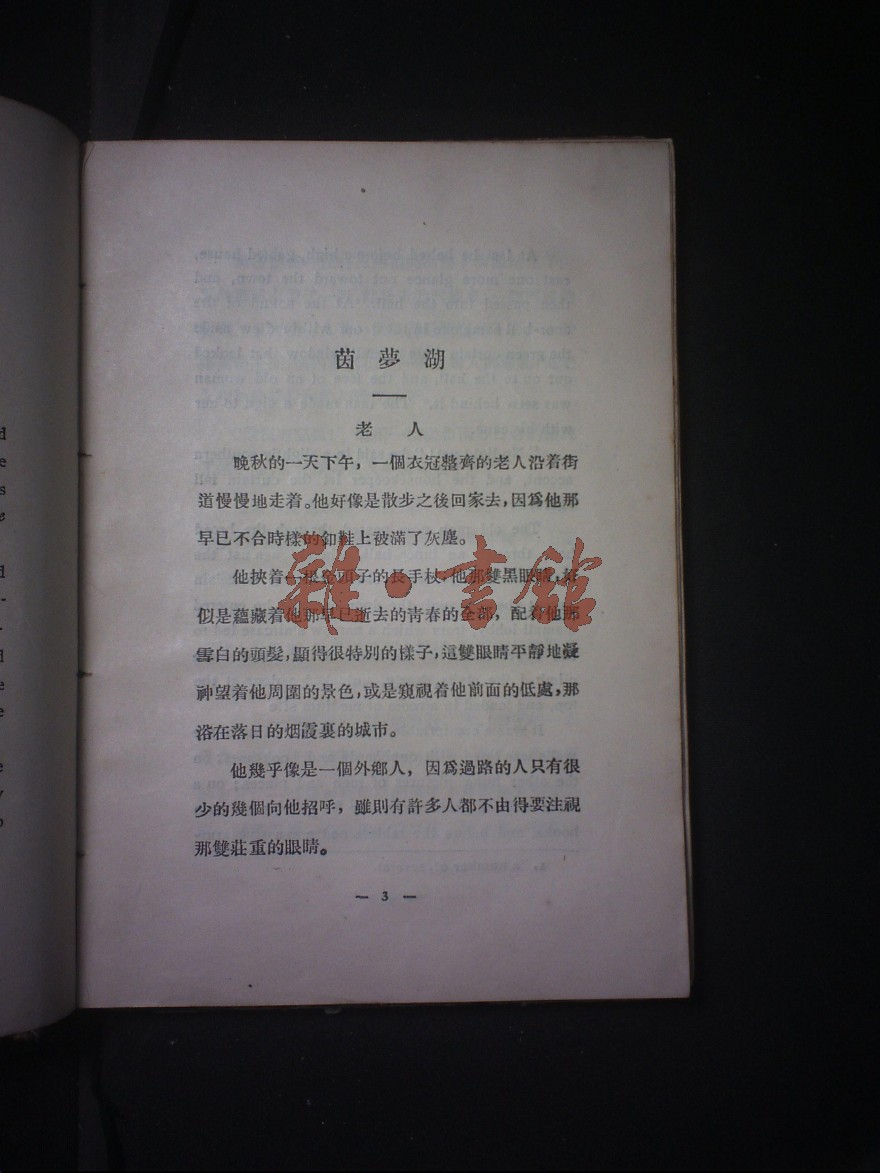 茵夢湖
老人
晚秋的一天下午，一個衣冠整齊的老人沿着街
道慢慢地走着。他好像是散步之後回家去，因爲他那
早已不合時樣的釦鞋上被滿了灰塵。
他挾着一根金頭子的長手杖，他那雙黑眼睛，好
似是蘊藏着他那早已逝去的靑春的全部，配着他那
雪白的頭髮，顯得很特別的樣子，這雙眼睛平靜地凝
神望着他周圍的景色，或是窺視着他前面的低處，那
浴在落日的烟霞裏的城市。
他幾乎像是一個外鄉人，因爲過路的人只有很
少的幾個向他招呼，雖則有許多人都不由得要注視
那雙莊重的眼睛。
— 3 —
雜·書館